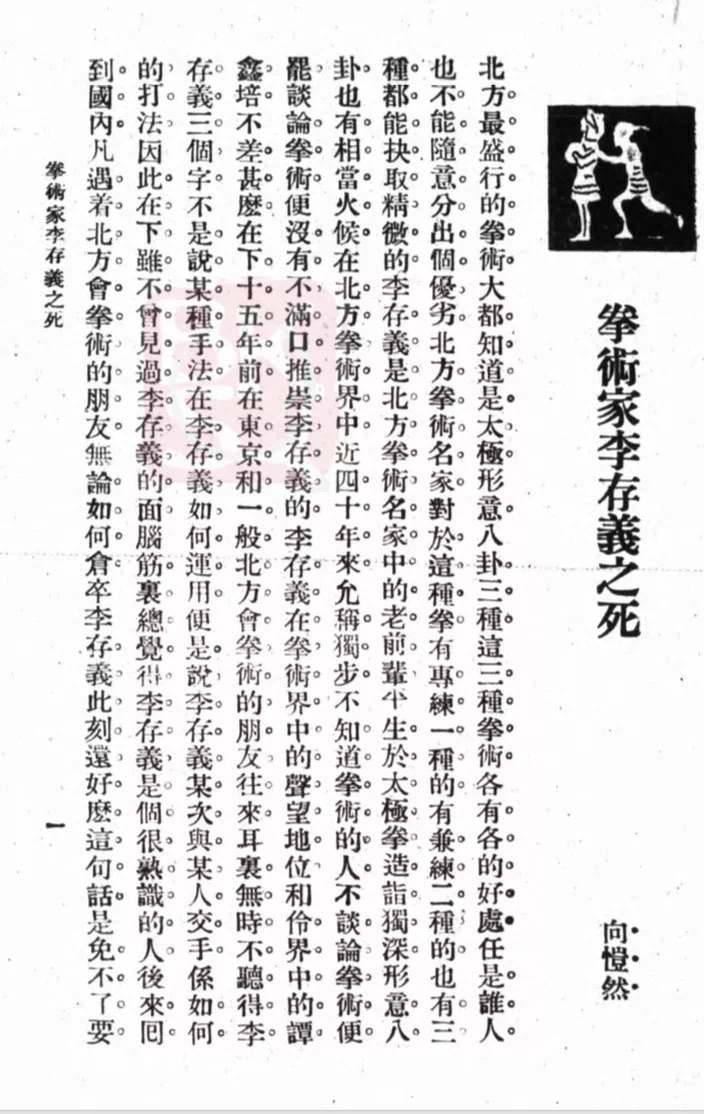 拳術家李存義之死
向愷然
北方最盛行的拳術大都知道是太極形意八卦三種這三種拳術各有各的好處任是誰人
也不能隨意分出個優劣北方拳術名家對於這種拳有專練一種的有兼練二種的也有三
種都能抉取精微的李存義是北方拳術名家中的老前輩半生於太極拳造詣獨深形意八
卦也有相當火候在北方拳術界中近四十年來允稱獨步不知道拳術的人不談論拳術便
罷談論拳術便沒有不滿口推崇李存義的李存義在拳術界中的聲望地位和伶界中的譚
鑫培不差甚麽在下十五年前在東京和一般北方會拳術的朋友往來耳裏無時不聽得李
存義三個字不是說某種手法在李存義如何運用便是說李存義某次與某人交手係如何
的打法因此在下雖不曾見過李存義的面腦筋裏總覺得李存義是個很熟識的人後來囘
到國內凡遇着北方會拳術的朋友無論如何倉卒李存義此刻還好麽這句話是免不了要
拳術家李存義之死
一